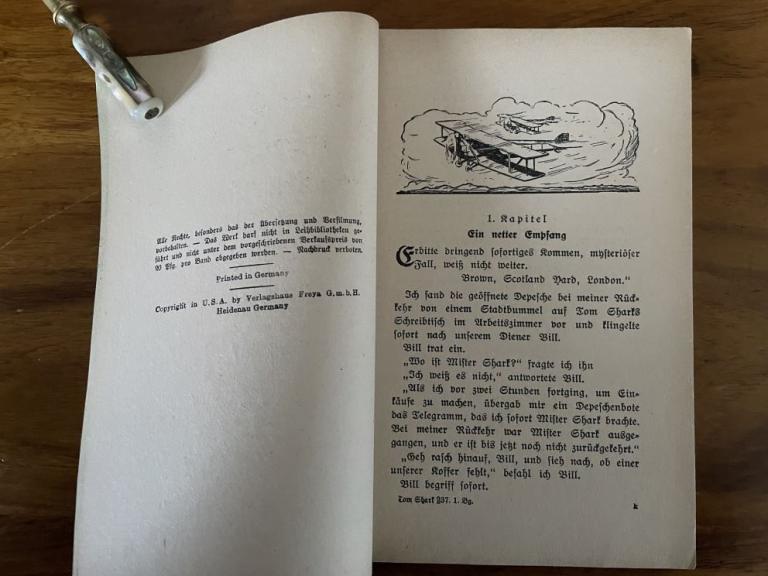 Alle Rechte, besonders das der Übersetzung und Verfilmung,
vorbehalten. — Das Werk darf nicht in Leihbibliotheken ge-
führt und nicht unter dem vorgeschriebenen Verkaufspreis von
20 Pfg. pro Band abgegeben werden. — Nachdruck verboten.
Printed in Germany
Copyright in U.S.A. by Verlagshaus Freya G.m.b.H.
Heidenau Germany
1. Kapitel
Ein netter Empfang
Erbitte dringend sofortiges Kommen, mysteriöser
Fall, weiß nicht weiter.
Brown, Scotland Yard, London.“
Ich fand die geöffnete Depesche bei meiner Rück-
kehr von einem Stadtbummel auf Tom Sharks
Schreibtisch im Arbeitszimmer vor und klingelte
sofort nach unserem Diener Bill.
Bill trat ein.
„Wo ist Mister Shark?“ fragte ich ihn
„Ich weiß es nicht,“ antwortete Bill.
„Als ich vor zwei Stunden fortging, um Ein-
käufe zu machen, übergab mir ein Depeschenbote
das Telegramm, das ich sofort Mister Shark brachte.
Bei meiner Rückkehr war Mister Shark ausge-
gangen, und er ist bis jetzt noch nicht zurückgekehrt.“
„Geh rasch hinauf, Bill, und sieh nach, ob einer
unserer Koffer fehlt,“ befahl ich Bill.
Bill begriff sofort.
Tom Shark 237. 1. Bg.